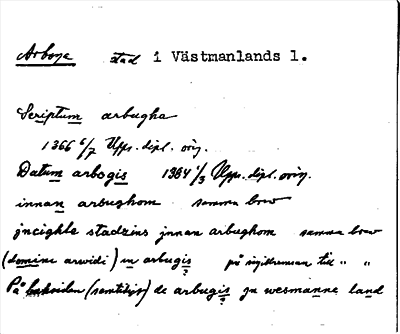 Arboga stad i Västmanlands l.
Scriptum arbugha
1366 6/7 Upps. dipl. orig.
Datum arbogis 1384 1/3 Upps. dipl. orig.
innan arbughom samma brev
jncighle stadzins jnnan arbughom samma brev
(domini arwidi) in arbugis på till " "
På baksidan (samtidigt) de arbugis jn wesmanne land